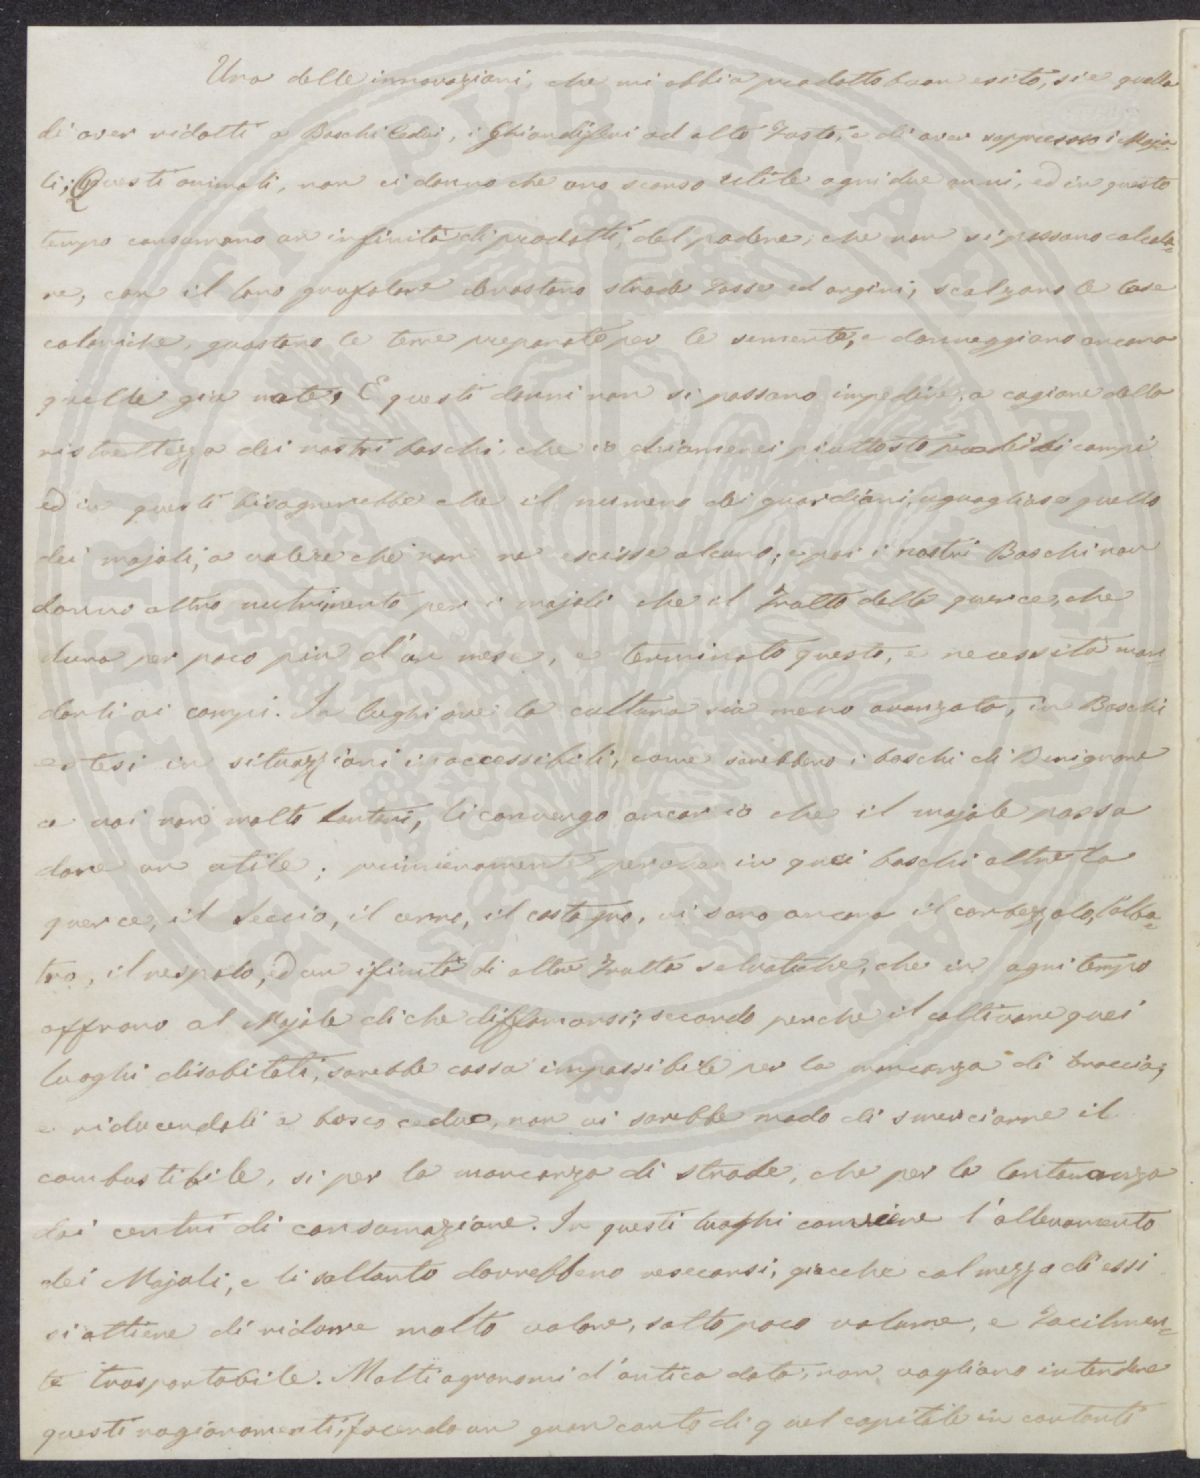 Una delle innovazioni, che mi abbia prodotto buon esito, si è quella
di aver ridotti a Boschi Cedui, i Ghiandiferi ad alto fusto, e di aver soppresso i Maja-
li; Questi animali, non ci danno che uno scarso utile ogni due anni, ed in questo
tempo consumano un infinità di prodotti del podere, che non si possono calcola-
re, con il loro grufolare devastano strade fosse ed argini, scalzano le case
coloniche, guastano le terre preparate per le semente, e danneggiano ancora
quelle già nate; E questi danni non si possono impedire, a cagione della
ristrettezza dei nostri boschi, che io chiamerei piuttosto prodidi campi
ed in questi bisognerebbe che il numero dei guardiani, uguagliasse quello
dei majali, a volere che non ne escisse alcuno; e poi i nostri Boschi non
danno altro nutrimento per i majali che il frutto della querce, che
dura per poco più d'un mese, e terminato questo, è necessità man-
darli ai campi. In luoghi ove la cultura sia meno avanzata, in Boschi
estesi in situazzioni inaccessibili, come sarebbero i boschi di Berignone
a voi non molto lontani, li convengo ancor io che il majale possa
dare un utile; primieramente perchè in quei boschi oltre la
querce, il Leccio, il cerro, il castagno, vi sono ancora il corbezzolo, l'alba-
tro, il nespolo, ed un ifinità di altre frutta selvatiche, che in ogni tempo
offrono al Majale di che disfamarsi; secondo perchè il coltivare quei
luoghi disabitati, sarebbe cossa impossibile per la mancanza di braccia;
e riducendoli a bosco ceduo, non vi sarebbe modo di smerciarne il
combustibile, si per la mancanza di strade, che per la lontananza
dai centri di consumazione. In questi luoghi conviene l'allevamento
dei Majali, e li soltanto dovrebbero resecarsi, giacchè col mezzo di essi
si ottiene di ridurre molto valore, sotto poco volume, e facilmen-
te trasportabile. Molti agronomi d'antica data, non vogliano intendere
questi ragionamenti, facendo un gran conto di quel capitale in contanti